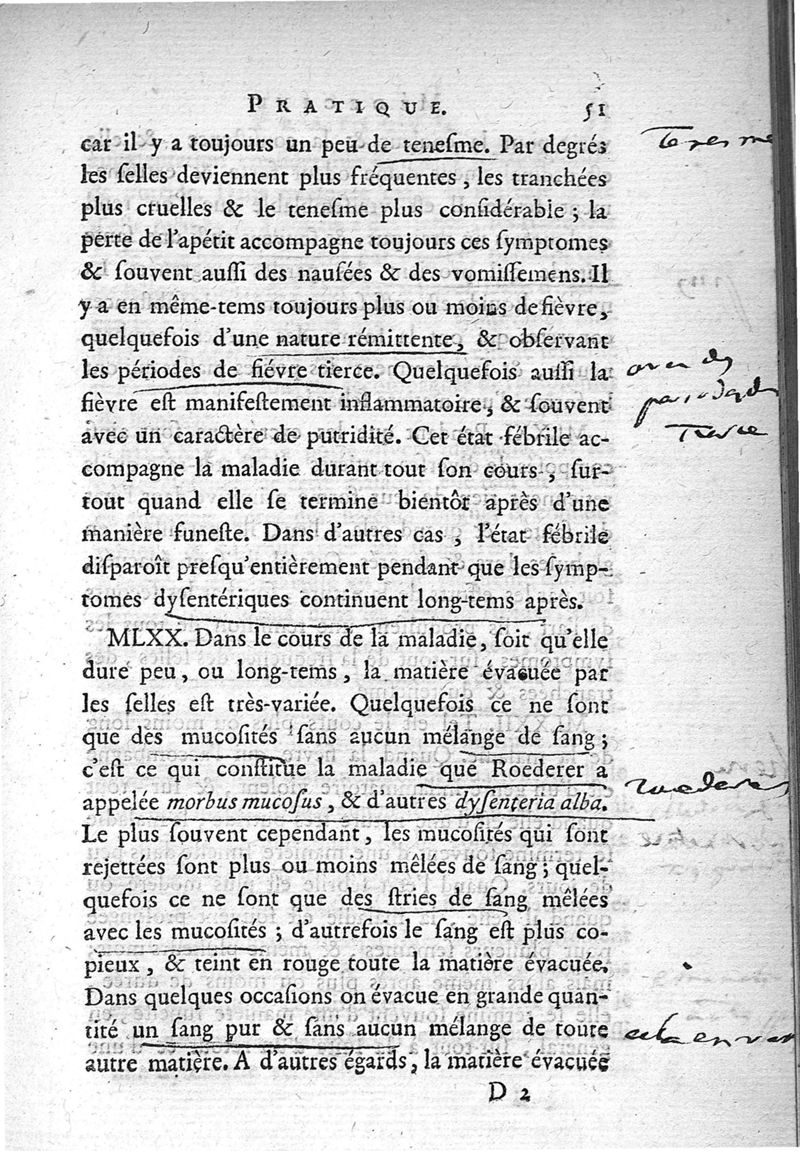 PRATIQUE. 51
car il y a toujours un peu de teneſme. Par degrés
Tenesme
les ſelles deviennent plus fréquentes, les tranchées
plus cruelles & le teneſme plus conſidérable ; la
perte de l'apétit accompagne toujours ces ſymptomes
& ſouvent auſſi des nauſées & des vomiſſemens. Il
y a en même-tems toujours plus ou moins de fièvre,
quelquefois d'une nature rémittente, & obſervant
les périodes de fiévre tierce. Quelquefois auſſi la
fièvre eſt manifeſtement inflammatoire, & ſouvent
avec un caractère de putridité. Cet état fébrile ac-
Tierce
compagne la maladie durant tout ſon cours, ſur-
tout quand elle ſe termine bientôt après d'une
manière funeſte. Dans d'autres cas, l'état fébrile
diſparoît preſqu'entièrement pendant que les ſymp-
tomes dyſentériques continuent long-tems après.
MLXX. Dans le cours de la maladie, ſoit qu'elle
dure peu, ou long-tems, la matière évacuée par
les ſelles eſt très-variée. Quelquefois ce ne ſont
que des mucoſités ſans aucun mélange de ſang ;
c'eſt ce qui conſtitue la maladie que Roederer a
Roederer
appelée morbus mucoſus, & d'autres dyſenteria alba.
Le plus ſouvent cependant, les mucoſités qui ſont
rejettées ſont plus ou moins mêlées de ſang ; quel-
quefois ce ne ſont que des ſtries de ſang mêlées
avec les mucoſités ; d'autrefois le ſang eſt plus co-
pieux, & teint en rouge toute la matière évacuée.
Dans quelques occaſions on évacue en grande quan-
tité un ſang pur & ſans aucun mélange de toute
autre matière. A d'autres égards, la matière évacuée
D 2